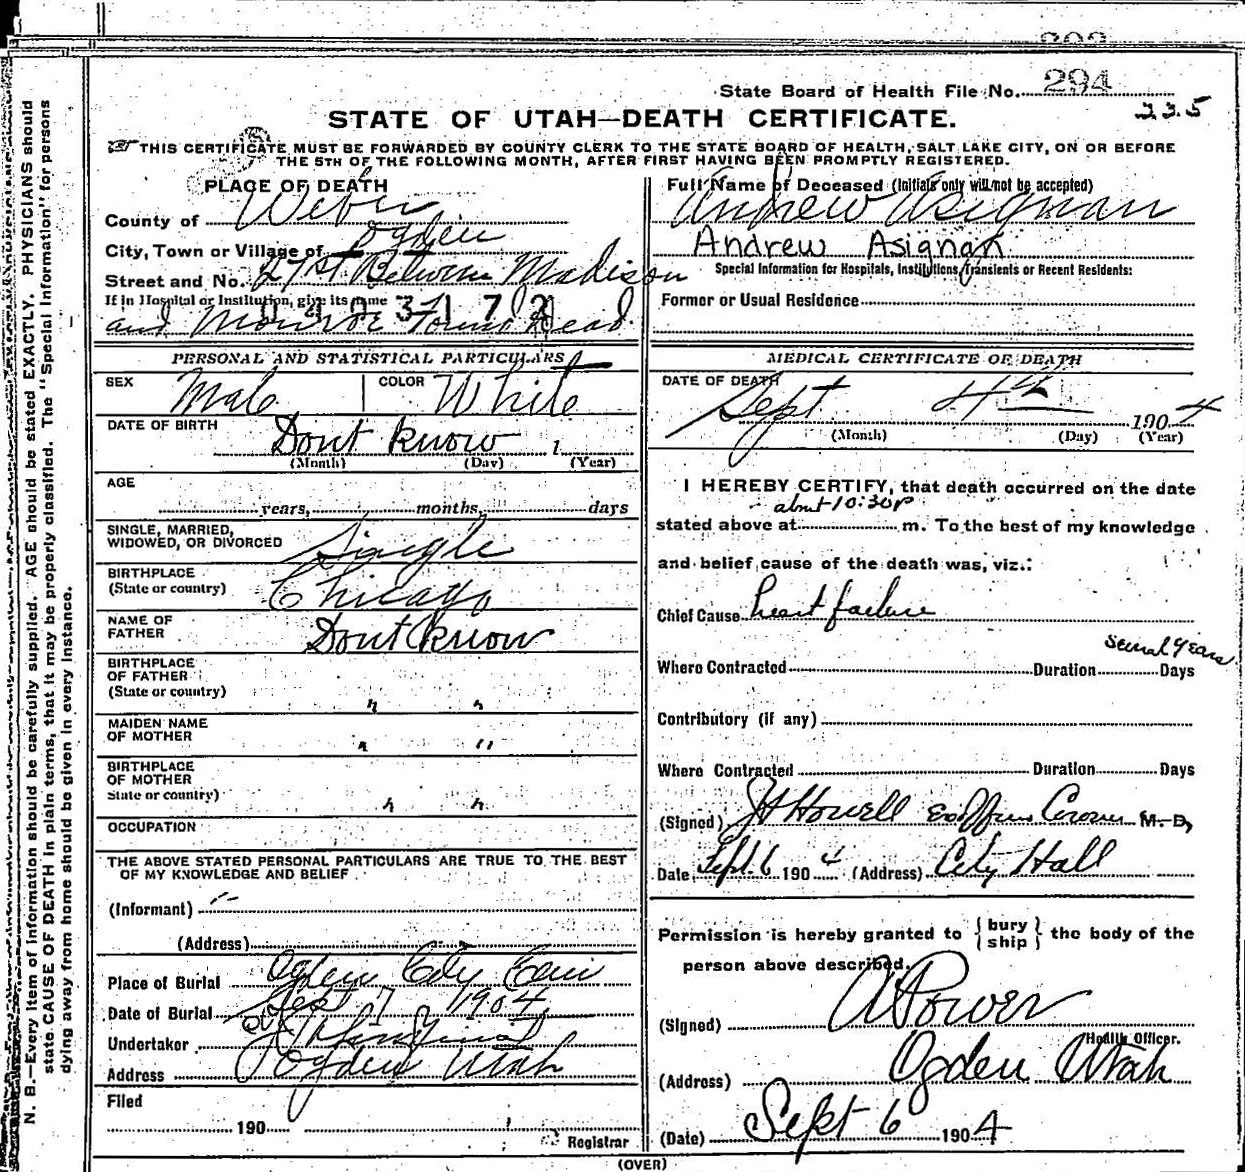 294
State Board of Health File No.
225
STATE OF UTAH—DEATH CERTIFICATE.
THIS CERTIFICATE MUST BE FORWARDED BY COUNTY CLERK TO THE STATE BOARD OF HEALTH, SALT LAKE CITY, ON OR BEFORE
THE 5TH OF THE FOLLOWING MONTH, AFTER FIRST HAVING BEEN PROMPTLY REGISTERED.
N. B.—Every item of information should be carefully supplied. AGE should be stated EXACTLY. PHYSICIANS should
state CAUSE OF DEATH in plain terms, that it may be properly classified. The "Special Information" for persons
dying away from home should be given in every instance.
PLACE OF DEATH
County of Weber
City, Town or Village of Ogden
Street and No. 27st Between Madison
If in Hospital or Institution, give its name
and Monroe Found Dead
PERSONAL AND STATISTICAL PARTICULARS
SEX Male COLOR White
DATE OF BIRTH Dont Know 1
(Month) (Day) (Year)
AGE
years, months, days
SINGLE, MARRIED,
WIDOWED, OR DIVORCED Single
BIRTHPLACE
(State or country) Chicago
NAME OF
FATHER Dont Know
BIRTHPLACE
OF FATHER
(State or country) " "
MAIDEN NAME
OF MOTHER " "
BIRTHPLACE
OF MOTHER
State or country) " "
OCCUPATION
THE ABOVE STATED PERSONAL PARTICULARS ARE TRUE TO THE BEST
OF MY KNOWLEDGE AND BELIEF
(Informant)
(Address)
Place of Burial Ogden City Cem
Date of Burial Sept 7 1904
Undertaker
Address Ogden Utah
Filed
190
Registrar
Full Name of Deceased (Initials only will not be accepted)
Andrew Asigman
Andrew Asignan
Special Information for Hospitals, Institutions, Transients or Recent Residents:
Former or Usual Residence
MEDICAL CERTIFICATE OF DEATH
DATE OF DEATH
Sept 4th 1904
(Month) (Day) (Year)
I HEREBY CERTIFY, that death occurred on the date
about 10:30 P
stated above at m. To the best of my knowledge
and belief cause of the death was, viz.:
Chief Cause heart failure
several years
Where Contracted Duration Days
Contributory (if any)
Where Contracted Duration Days
(Signed) Howell Exofficio Coroner M. D,
Date Sept. 6 1904 (Address) City Hall
Permission is hereby granted to { bury ship } the body of the
person above described.
(Signed) A Power
Health Officer.
(Address) Ogden Utah
(Date) Sept 6 1904
(OVER)